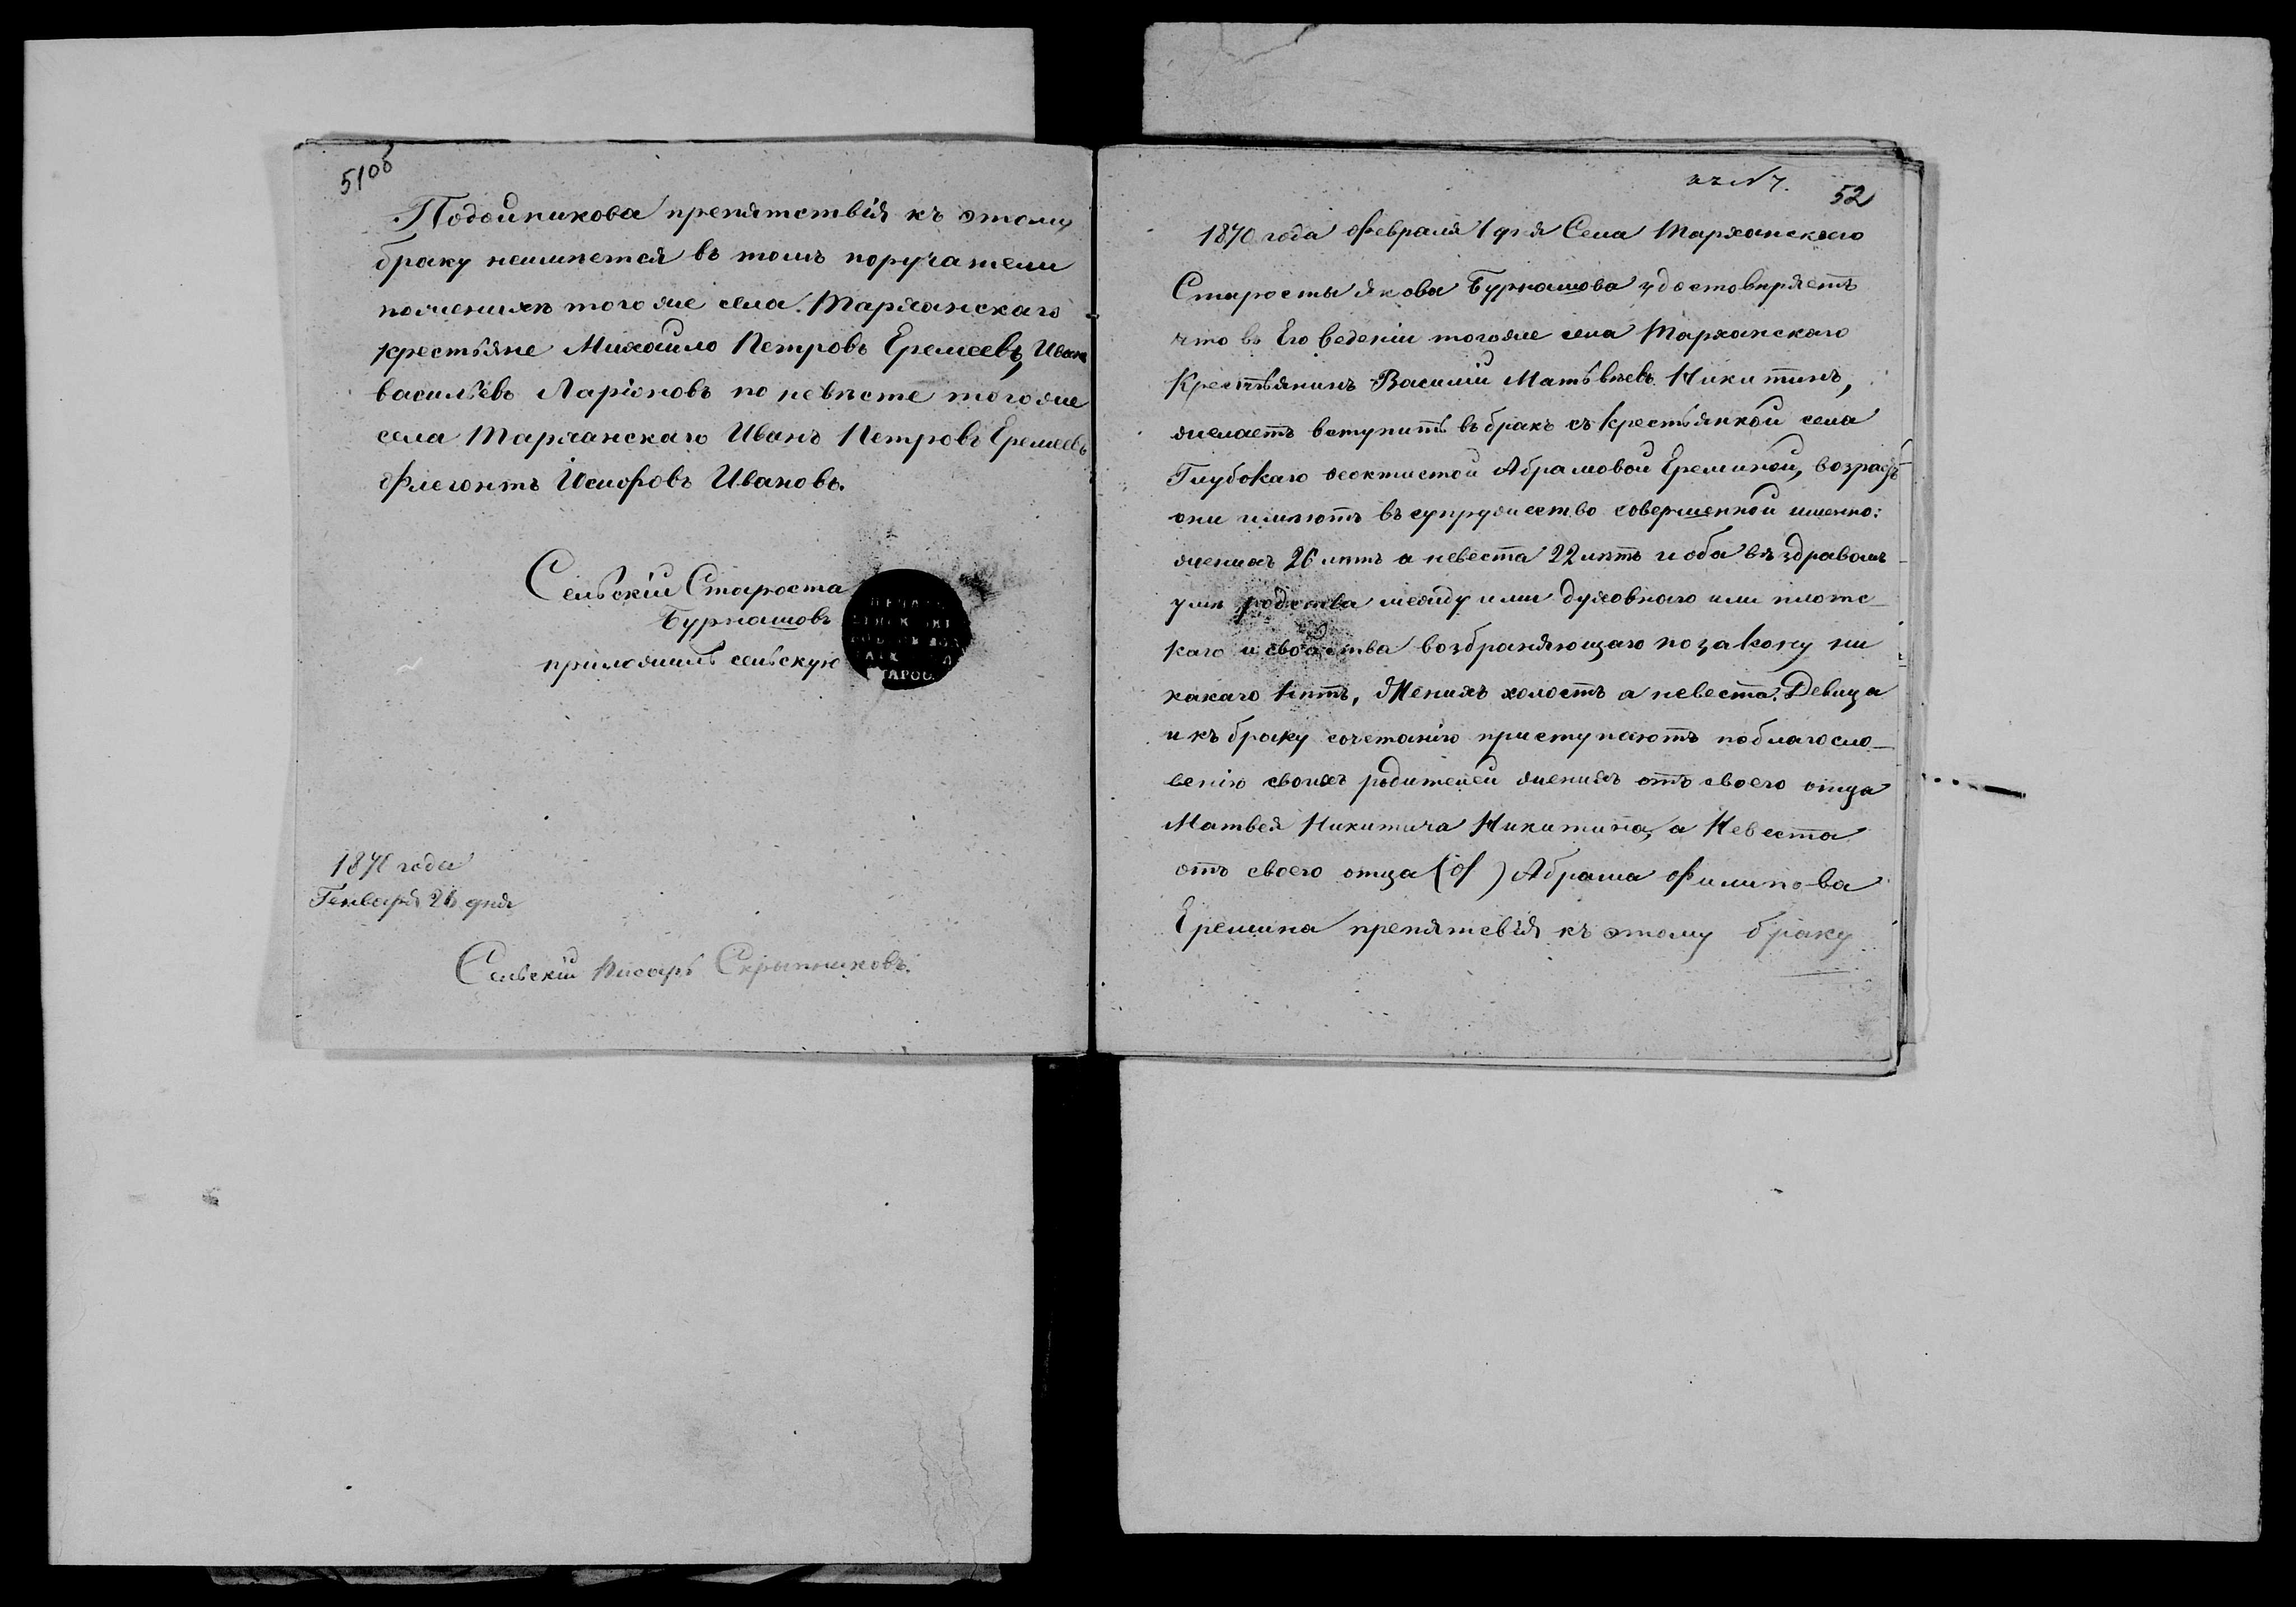 51об
Подойникова препятствія къ этому
браку неимпется въ томъ поручатели
поженихѣ того же села Тарханскаго
крестьяне Михайло Петровъ Еремеевъ, Иван
васильевъ Ларіоновъ по невѣсте тогоже
села Тарханскаго Иванъ Петровъ Еремеевъ
Флегонтъ Исидоровъ Ивановъ.
Сельскій Староста
Бурнашовъ
приложилъ сельскую
ПЕЧАТЬ
СТАРОС.
1870 года
Генваря 26 дня
Сельскій Писарь Скрыпниковъ.
къ № 7.
52
1870 года Февраля 1 дня Села Тарханскаго
Старосты Якова Бурнашова удостовѣряетъ
что въ Его ведѣніи тогоже села Тарханскаго
Крестьянинъ Василій Матьвѣевъ Никитинъ,
желаетъ вступить въ бракъ съ Крестьянкой села
Глубокаго Ѳеоктистой Абрамовой Ереминой, возрастъ
они имѣютъ въ супружество совершенной именно:
женихъ 26 лѣтъ а невеста 22 лѣтъ и оба въ здравомъ
умѣ родства между ими духовнаго или плотс-
каго и свойства возбраняющаго по закону ни
какаго нѣтъ, Женихъ холостъ а невеста Девица
и къ браку сочетанію приступаютъ поблагосло-
венію своихъ родителей женихъ отъ своего отца
Матвея Никитича Никитина, а Невеста
отъ своего отца (Ф) Абрама Филипова
Еремина препятсвія къ этому браку